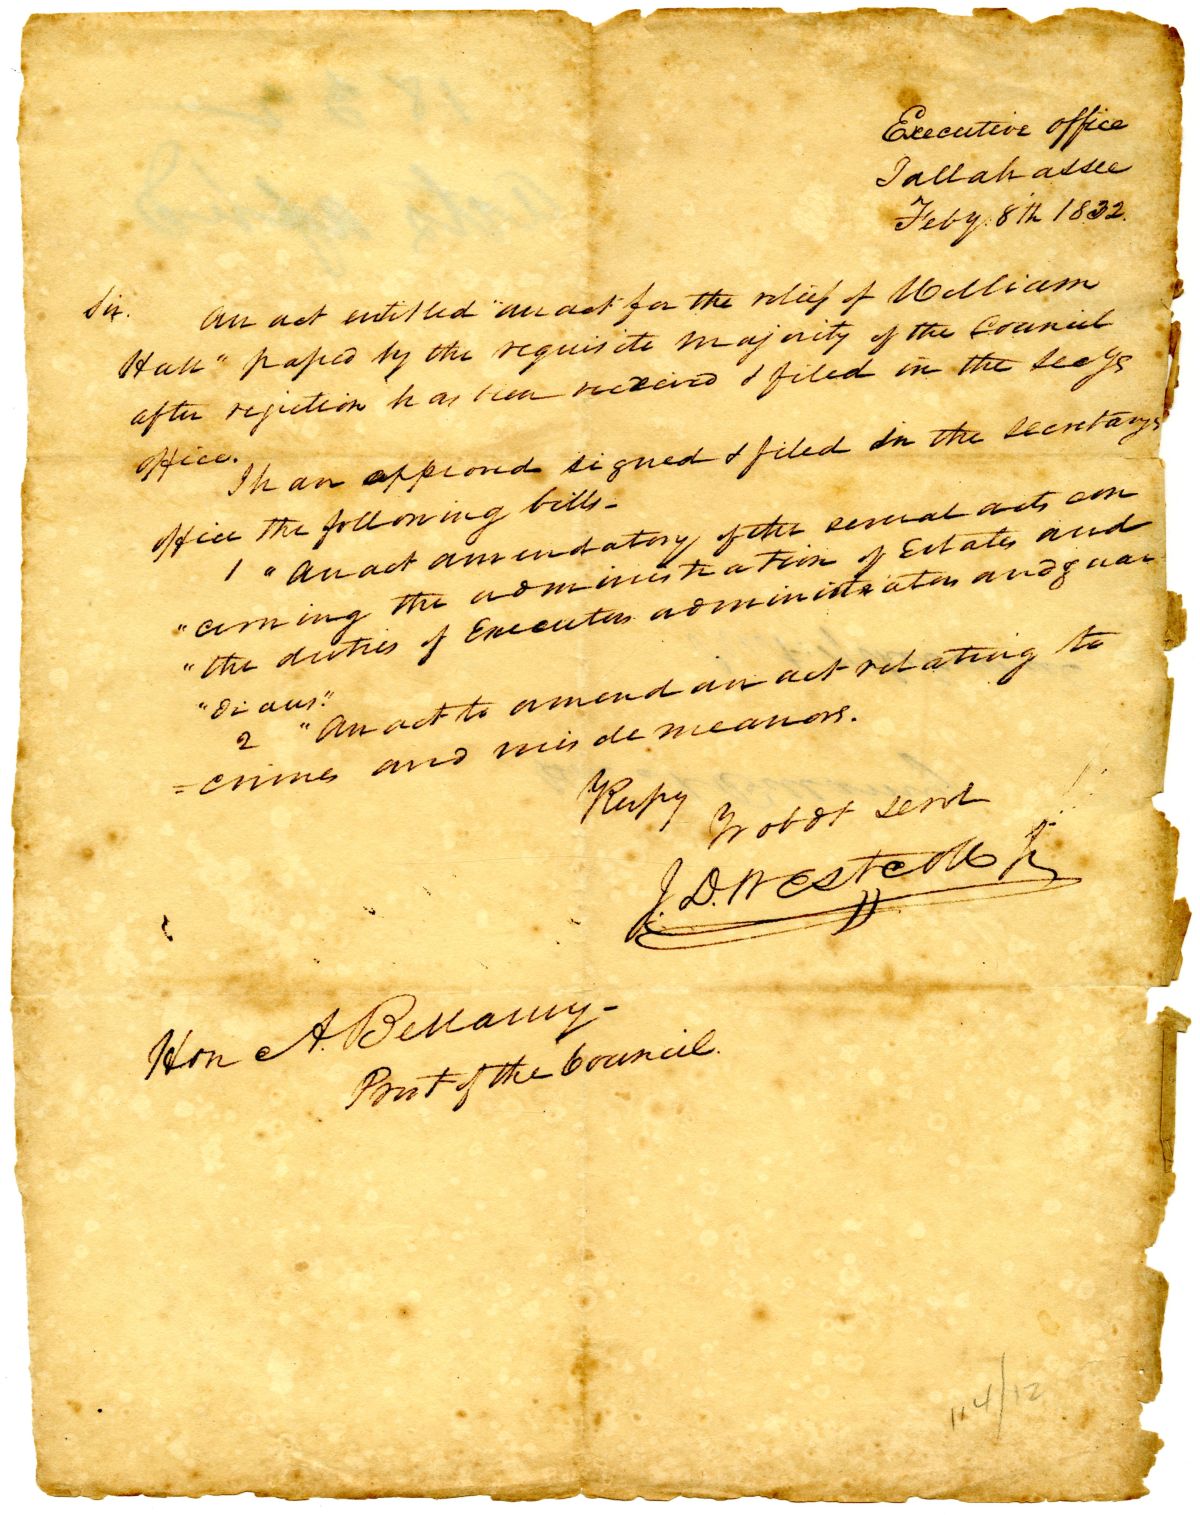 Executive office
Tallahassee
Feby. 8th 1832.
Sir. An act entitled "an act for the relief of William
Hall" passed by the requisite majority of the Council
after rejection has been received & filed in the Secys
office.
I have approved signed & filed in the secretarys
office the following bills-
1 "An act amendatory of the several acts con
"cerning the administration of Estates and
"the duties of Executors administrators and guar
"dians."
2 "An act to amend an act relating to
=crimes and misdemeanors.
Respy
Yr obdt servt
J. D. Westcott Jr
Hon A. Bellamy-
Prest of the Council.
114/12